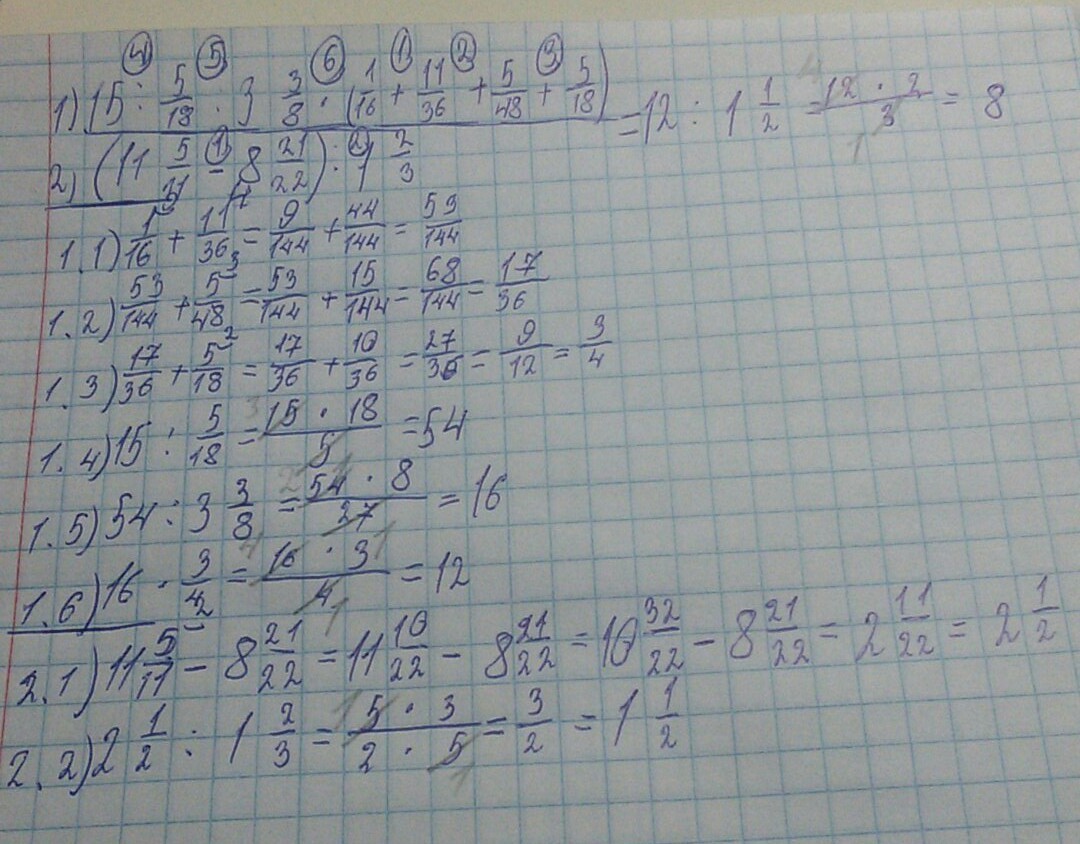 ④ ⑤ ⑥ ① ② ③
1) 15 : 5/18 : 3 3/8 · (1/16 + 11/36 + 5/48 + 5/18) = 12 : 1 1/2 = 12 · 2 / 3 = 8
2) (11 5/11 - 8 21/22) : 1 2/3
1.1) 1/16 + 11/36 = 9/144 + 44/144 = 53/144
1.2) 53/144 + 5/48 = 53/144 + 15/144 = 68/144 = 17/36
1.3) 17/36 + 5/18 = 17/36 + 10/36 = 27/36 = 9/12 = 3/4
1.4) 15 : 5/18 = 15 · 18 / 5 = 54
1.5) 54 : 3 3/8 = 54 · 8 / 27 = 16
1.6) 16 · 3/4 = 16 · 3 / 4 = 12
2.1) 11 5/11 - 8 21/22 = 11 10/22 - 8 21/22 = 10 32/22 - 8 21/22 = 2 11/22 = 2 1/2
2.2) 2 1/2 : 1 2/3 = 5 · 3 / 2 · 5 = 3/2 = 1 1/2